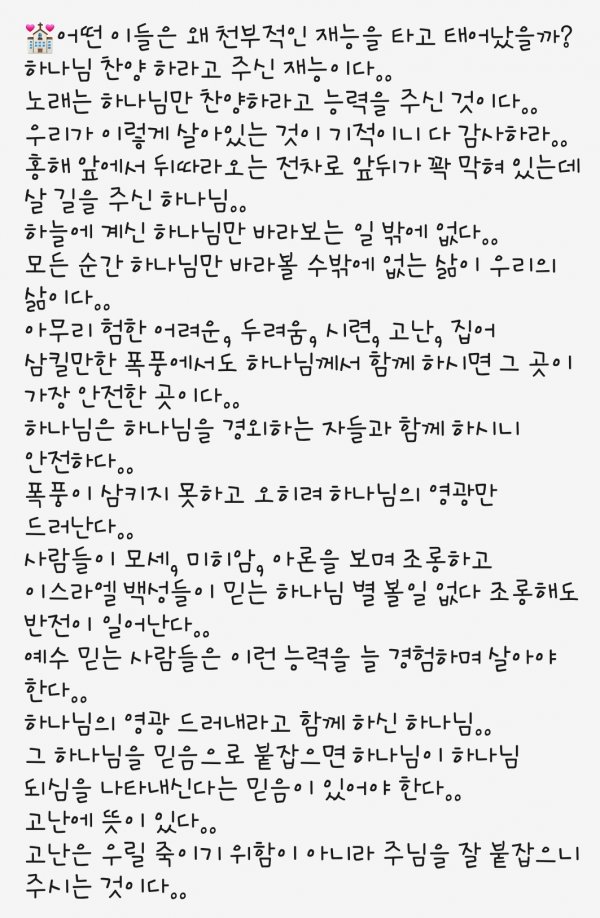 💒어떤 이들은 왜 천부적인 재능을 타고 태어났을까?
하나님 찬양 하라고 주신 재능이다..
노래는 하나님만 찬양하라고 능력을 주신 것이다..
우리가 이렇게 살아있는 것이 기적이니 다 감사하라..
홍해 앞에서 뒤따라오는 전차로 앞뒤가 꽉 막혀 있는데
살 길을 주신 하나님..
하늘에 계신 하나님만 바라보는 일 밖에 없다..
모든 순간 하나님만 바라볼 수밖에 없는 삶이 우리의
삶이다..
아무리 험한 어려운, 두려움, 시련, 고난, 집어
삼킬만한 폭풍에서도 하나님께서 함께 하시면 그 곳이
가장 안전한 곳이다..
하나님은 하나님을 경외하는 자들과 함께 하시니
안전하다..
폭풍이 삼키지 못하고 오히려 하나님의 영광만
드러난다..
사람들이 모세, 미히암, 아론을 보며 조롱하고
이스라엘 백성들이 믿는 하나님 별 볼일 없다 조롱해도
반전이 일어난다..
예수 믿는 사람들은 이런 능력을 늘 경험하며 살아야
한다..
하나님의 영광 드러내라고 함께 하신 하나님..
그 하나님을 믿음으로 붙잡으면 하나님이 하나님
되심을 나타내신다는 믿음이 있어야 한다..
고난에 뜻이 있다..
고난은 우릴 죽이기 위함이 아니라 주님을 잘 붙잡으니
주시는 것이다..